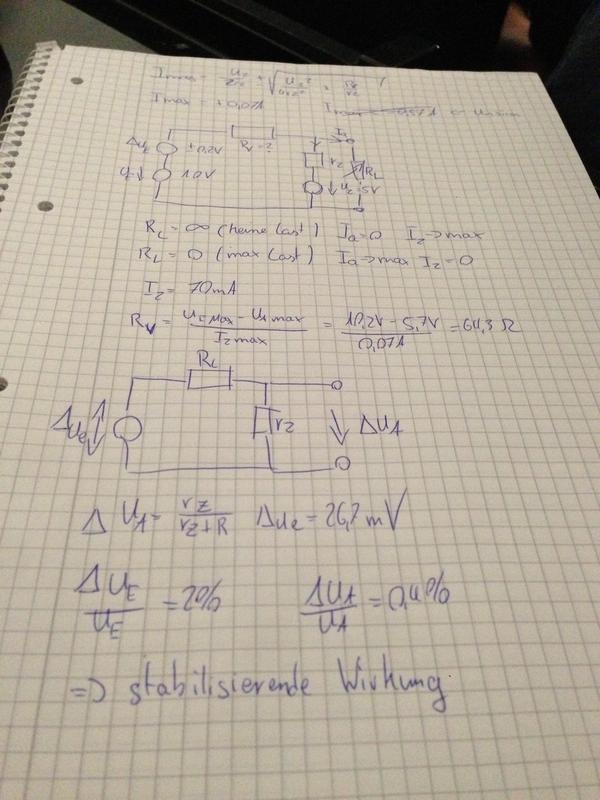 Imax = +0,07A
ΔUe ±0,2V
Rv = ?
I1
rz
RL
10V
Uz 5V
RL = ∞ (keine Last) Ia=0 Iz→max
RL = 0 (max Last) Ia→max Iz=0
Iz = 70mA
Rv = (UE max - UA max) / Iz max = (10,2V - 5,7V) / 0,07A = 64,3 Ω
RL
ΔUe
rz
ΔUA
Δ UA = rz / (rz+R) ΔUe = 26,7 mV
ΔUE / UE = 2% ΔUA / UA = 0,4%
=> stabilisierende Wirkung